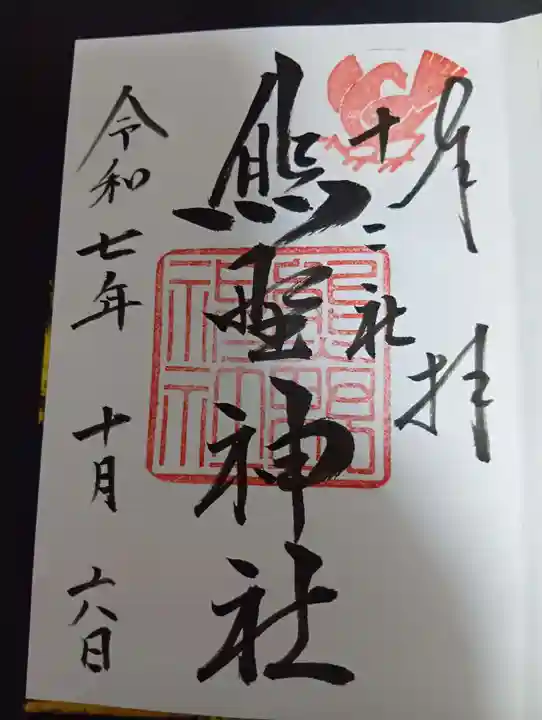 奉拝
十二社
熊野神社
令和七年 十月 十八日